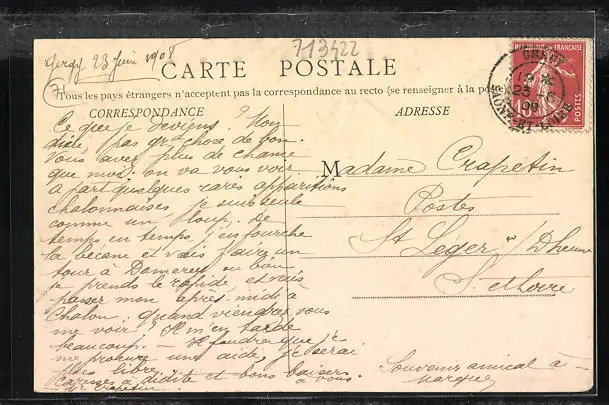 713422
Gergy 23 Juin 1908
CARTE POSTALE
71
Tous les pays étrangers n'acceptent pas la correspondance au recto (se renseigner à la pos
CORRESPONDANCE
ADRESSE
RÉPUBLIQUE FRANÇAISE
10
POSTES
GERGY
23
SAÔNE-ET-LOIRE
Ce que je deviens ? Mon
dieu, pas grand chose de bon.
Vous avez plus de chance
que moi: on va vous voir
A part quelques rares apparitions
chalonnaises je suis seule
comme un loup. De
temps en temps j'enfourche
la bécane et vais faire un
tour à Damerey ou bien
je prends le rapide et vais
passer mon après-midi à
Chalon. Quand viendrez vous
me voir ? Il m'en tarde
beaucoup. - Il faudra que je
me procure une aide, je serai
plus libre.
Caresses à didite et bons baisers
à vous
Madame Crapetin
Postes
St Léger s/ Dheune
S. & Loire
Souvenir amical à